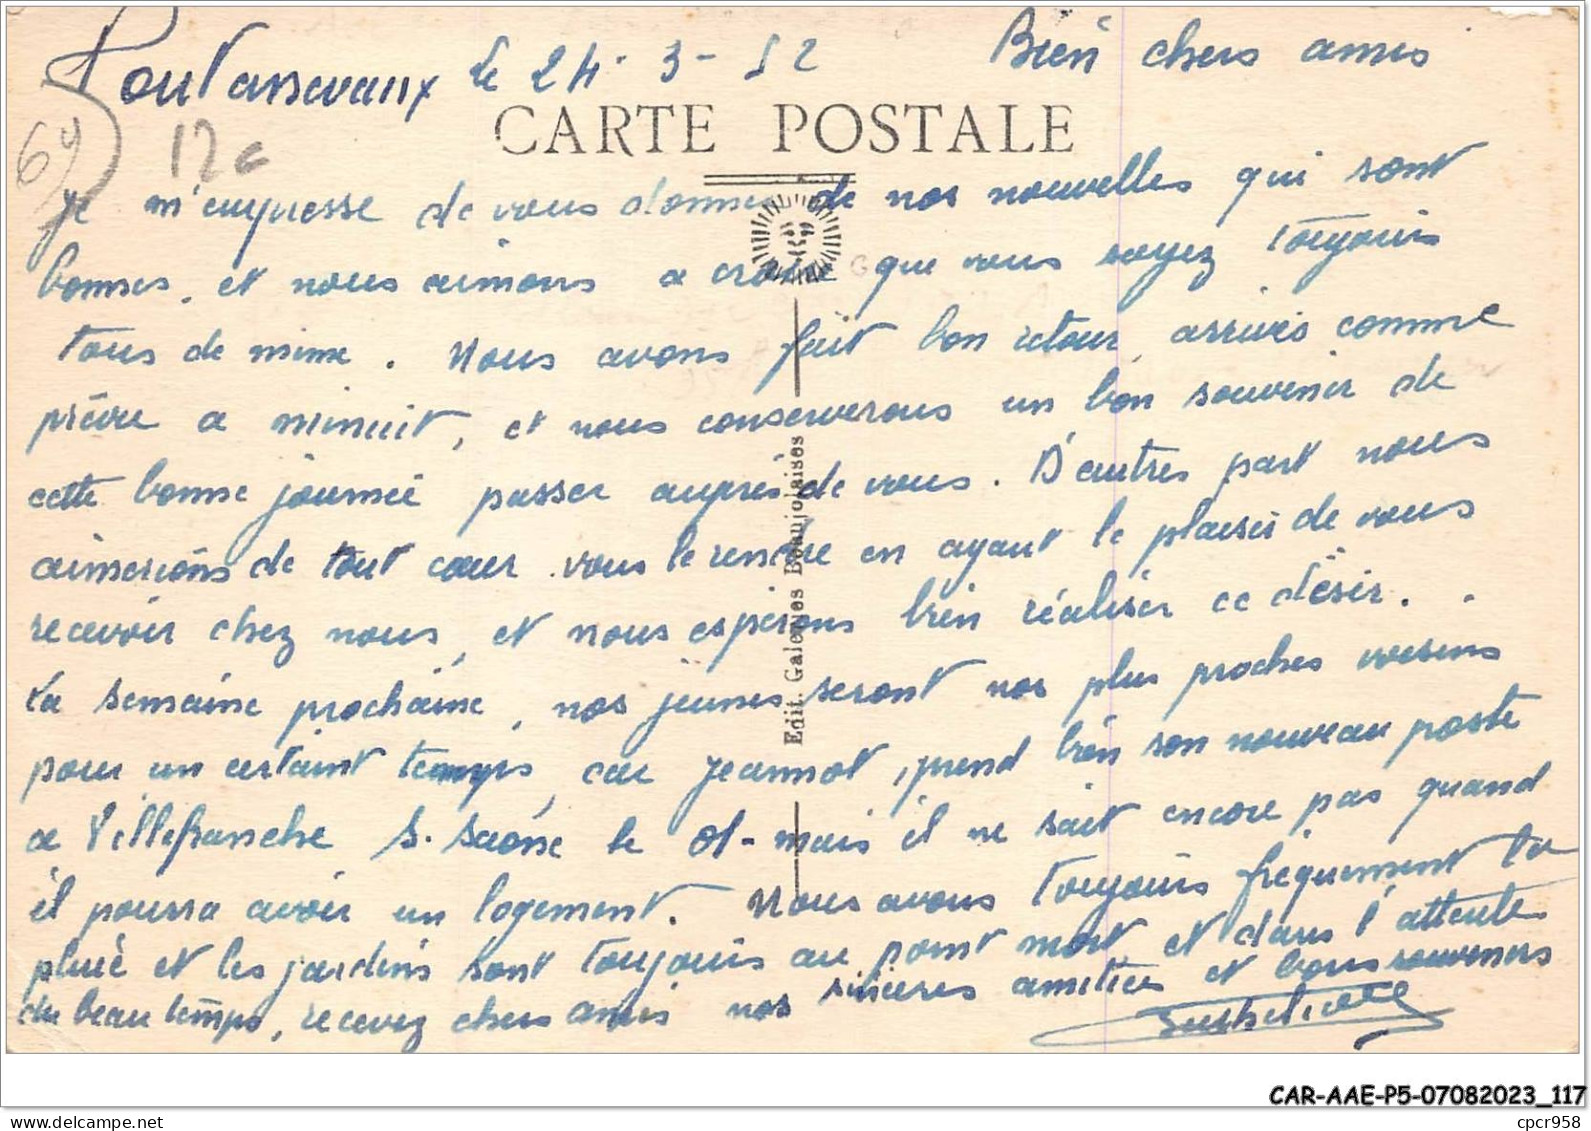 Pontanevaux le 24-3-52 Bien chers amis
CARTE POSTALE
69
12e
Je m'empresse de vous donner de nos nouvelles qui sont
bonnes, et nous aimons a croire que vous soyez toujours
tous de mime. Nous avons fait bon retour, arrivés comme
prévu a minuit, et nous conserverons un bon souvenir de
cette bonne journeé passer auprès de vous. D'autres part nous
aimerions de tout cœur vous le rendre en ayant le plaisir de vous
recevoir chez nous, et nous esperons bien réaliser ce désir.
La semaine prochaine, nos jeunes seront nos plus proches voisins
pour un certaint temps, car Jeannot, prend bien son nouveau poste
a Villefranche S. Saône le 01-mais il ne sait encore pas quand
il pourra avoir un logement. Nous avons toujours fréquement la
pluie et les jardins sont toujours au point mort, et dans l'attente
du beau temps, recevez chers amis nos sinceres amitiées et bons souvenirs
Edit. Galeries Beaujolaises
CAR-AAE-P5-07082023_117
cpcr958